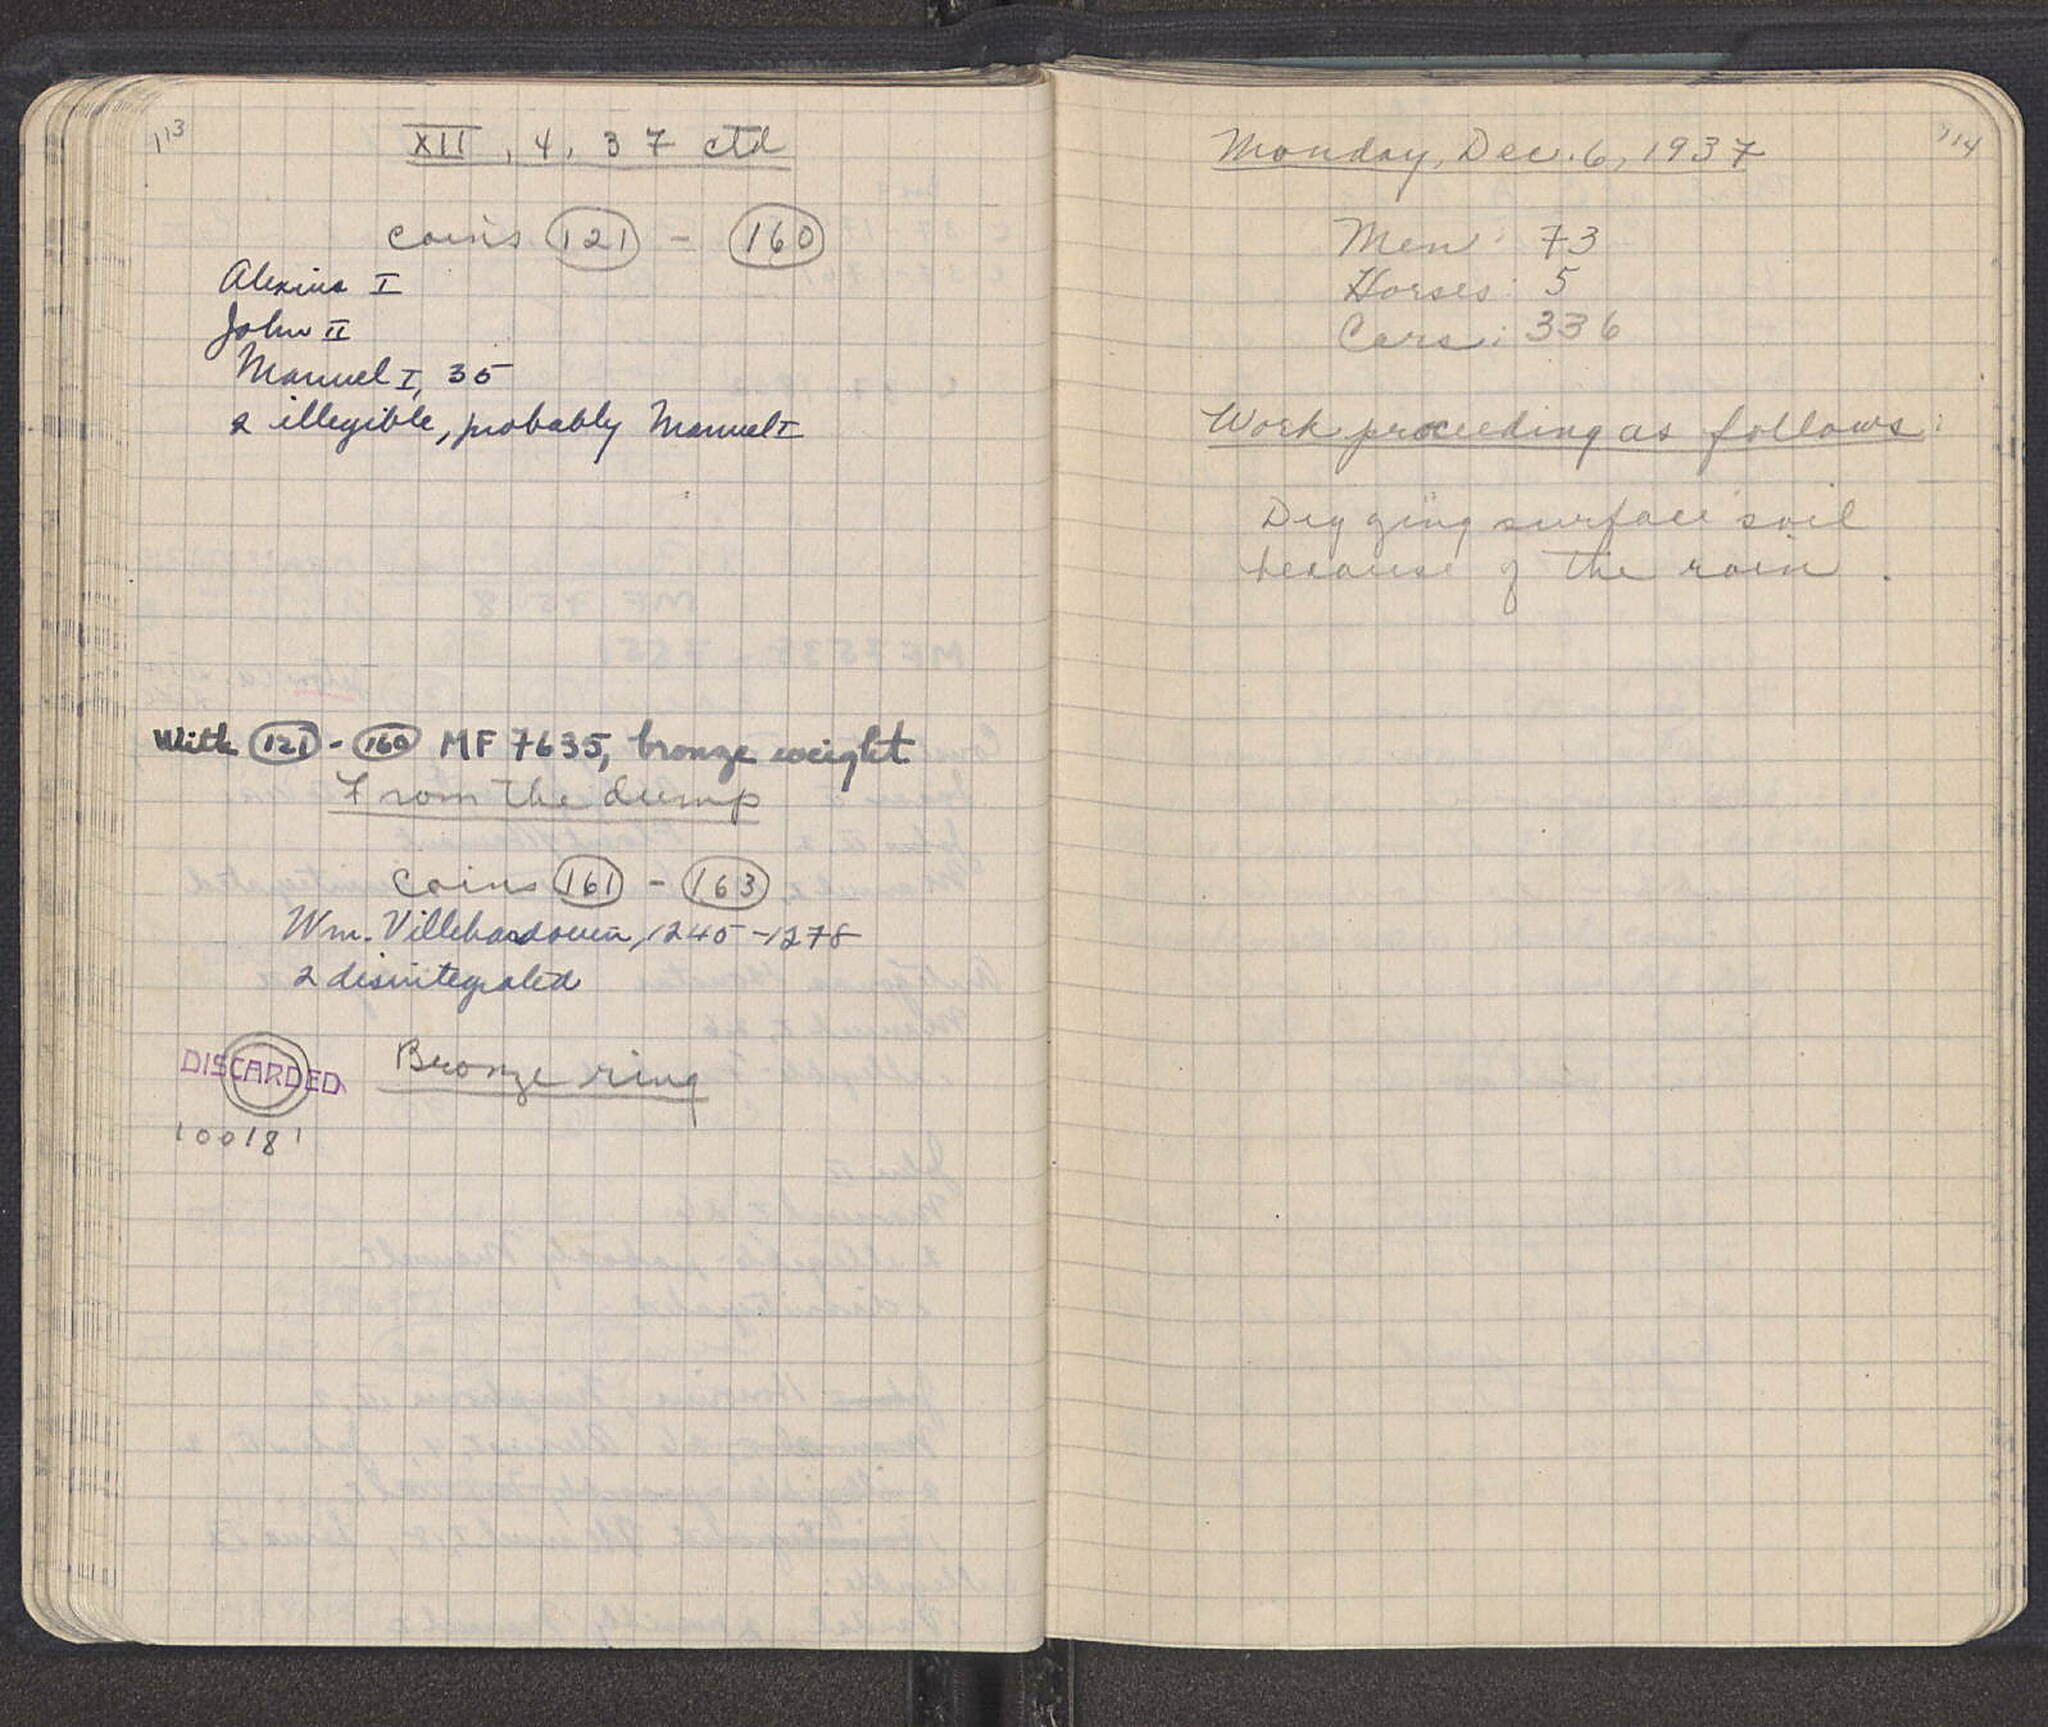 113
XII, 4, 37 ctd
coins 121 - 160
Alexius I
John II
Manuel I, 35
2 illegible, probably Manuel I
With 121 - 160 MF 7635, bronze weight
From the dump
coins 161 - 163
Wm. Villehardouin, 1245-1278
2 disintegrated
DISCARDED
Bronze ring
114
Monday, Dec. 6, 1937
Men: 73
Horses: 5
Cars: 336
Work proceeding as follows:
Digging surface soil
because of the rain.